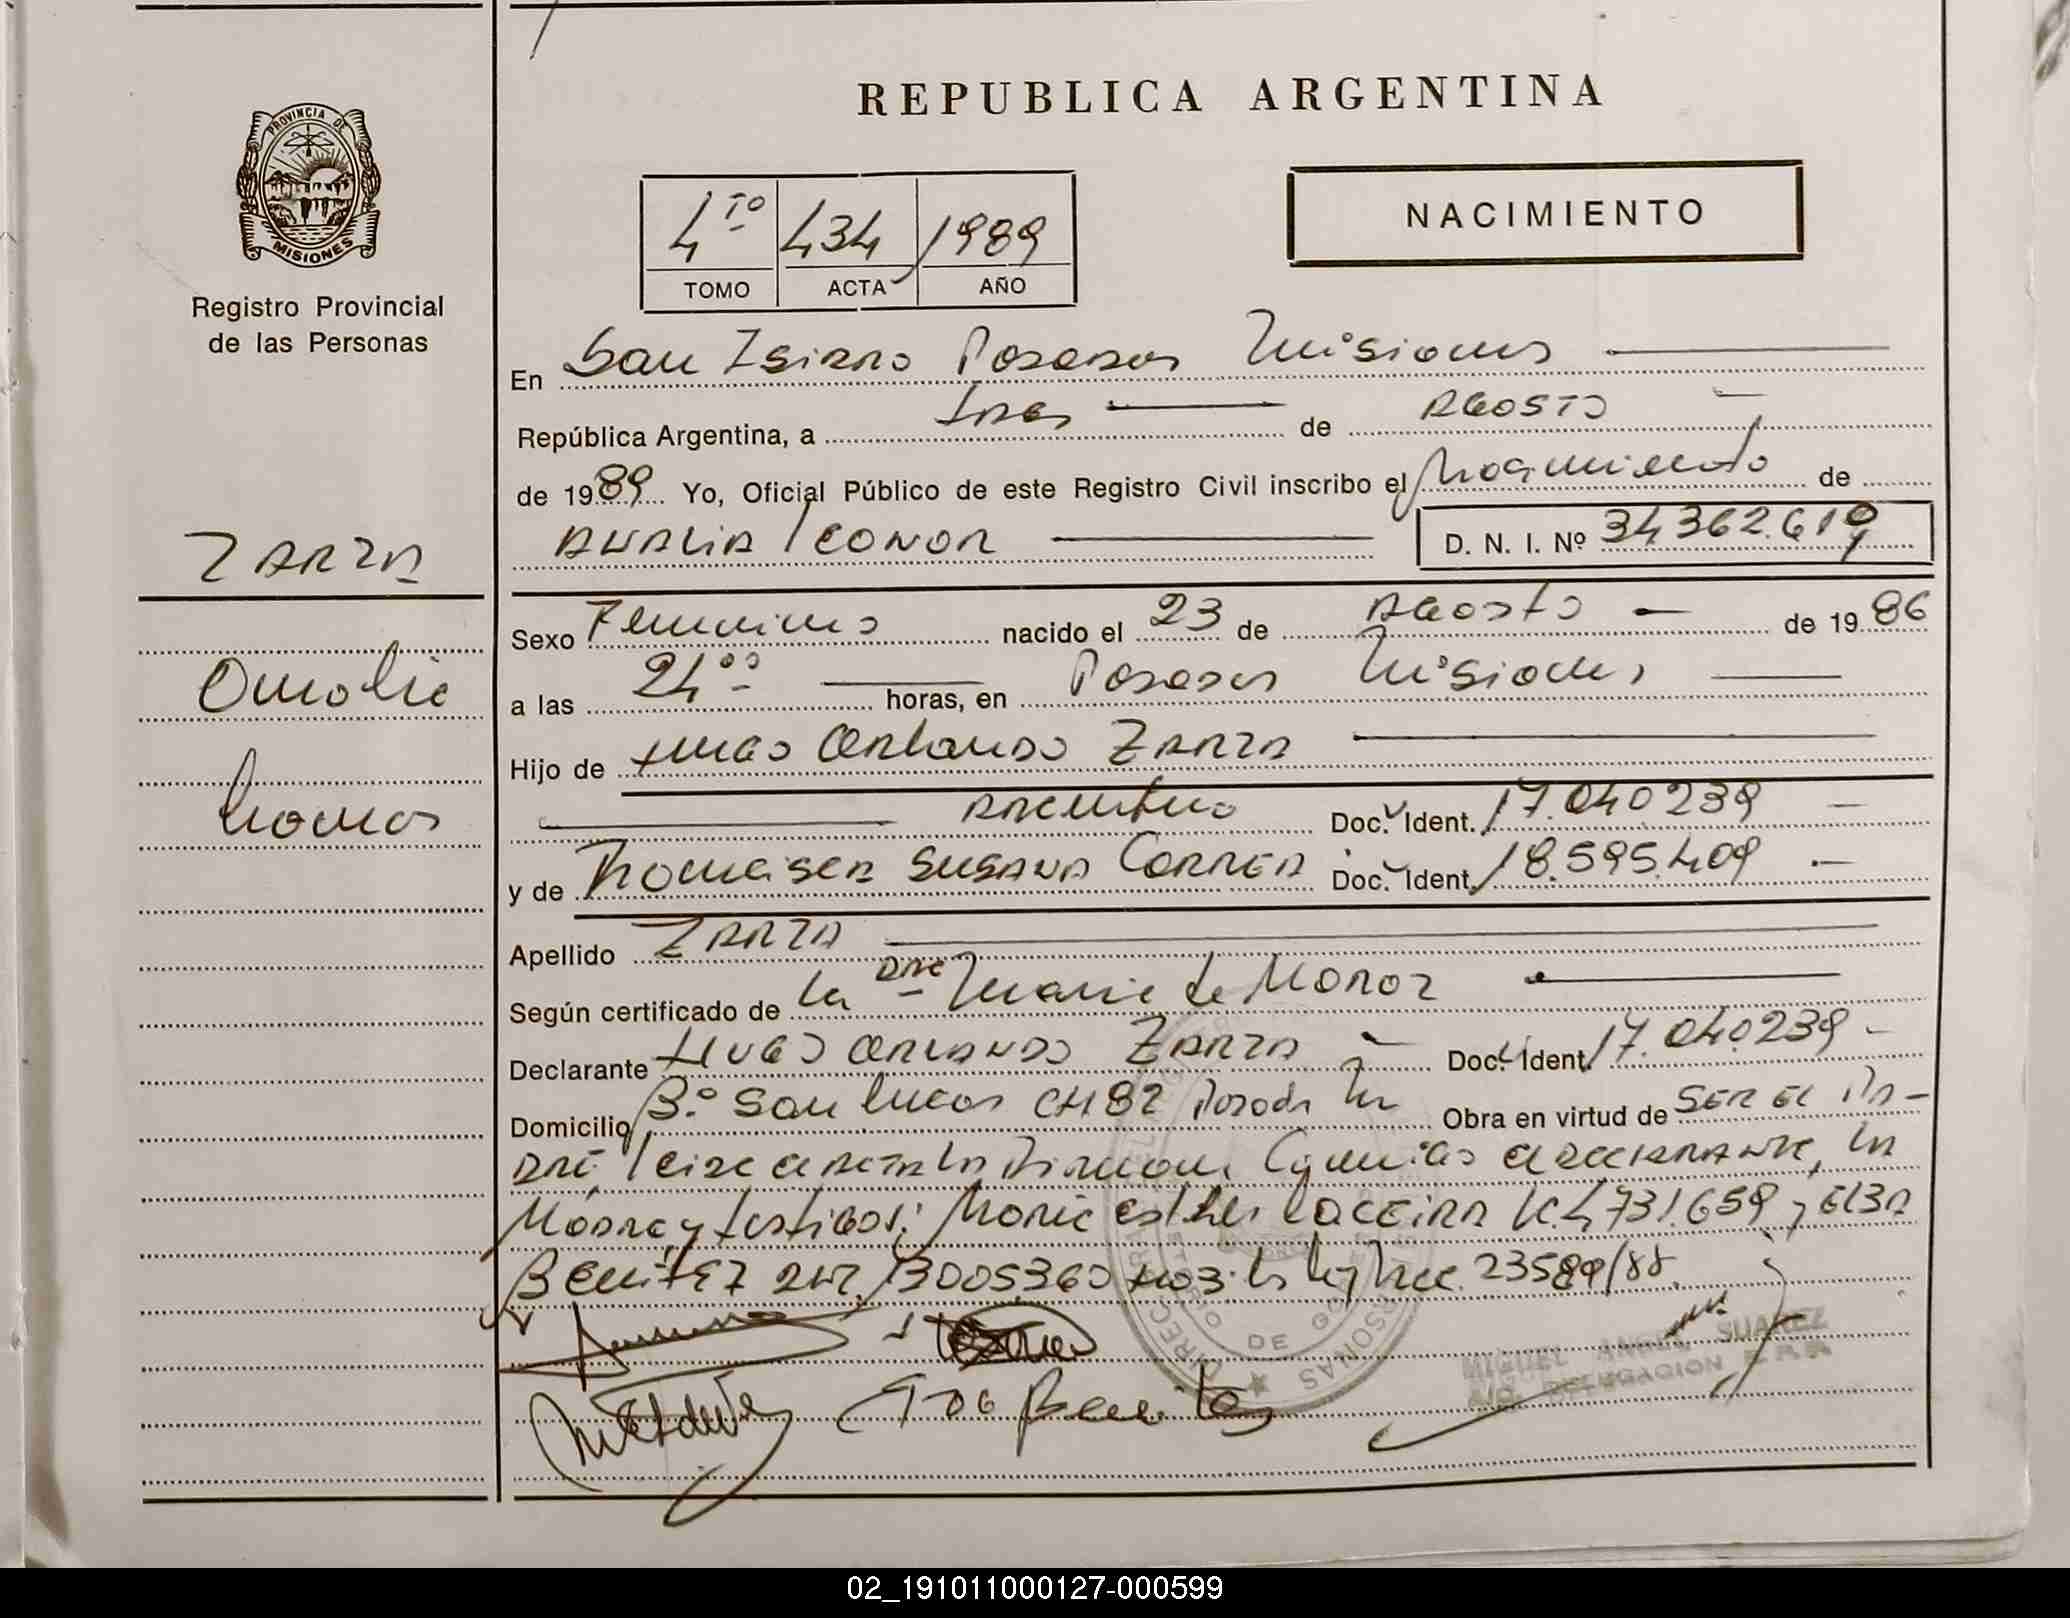 REPUBLICA ARGENTINA
PROVINCIA DE
MISIONES
Registro Provincial
de las Personas
NACIMIENTO
4to 434 1989
TOMO ACTA AÑO
En San Isidro Posadas Misiones
República Argentina, a tres de Agosto
de 1989 Yo, Oficial Público de este Registro Civil inscribo el Nacimiento de
Analia Leonor D. N. I. Nº 34362.619
ZARZA
Sexo Femenino nacido el 23 de Agosto de 1986
Analia
a las 24 00 horas, en Posadas Misiones
Hijo de Hugo Orlando ZARZA
Argentino Doc. Ident. 17.040.239
y de Ramona Susana Correa Doc. Ident. 18.595.409
Apellido ZARZA
Según certificado de la Dra Maria de
Declarante Hugo Orlando ZARZA Doc. Ident. 17.040.239
Domicilio Bº San Lucas CH 82 Posadas Obra en virtud de ser el pa-
dre, leida el acta la firman conmigo el declarante, la
Madre y testigos: Maria Esther 4731.659 y Elba
Benitez 13005360 23589/88.
Elba Benitez
MIGUEL ANGEL SUAREZ
DELEGACION
DE
02_191011000127-000599